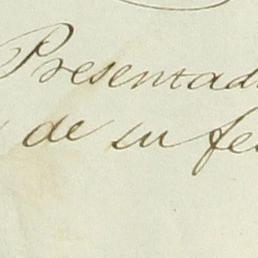 Presentad
de su fe